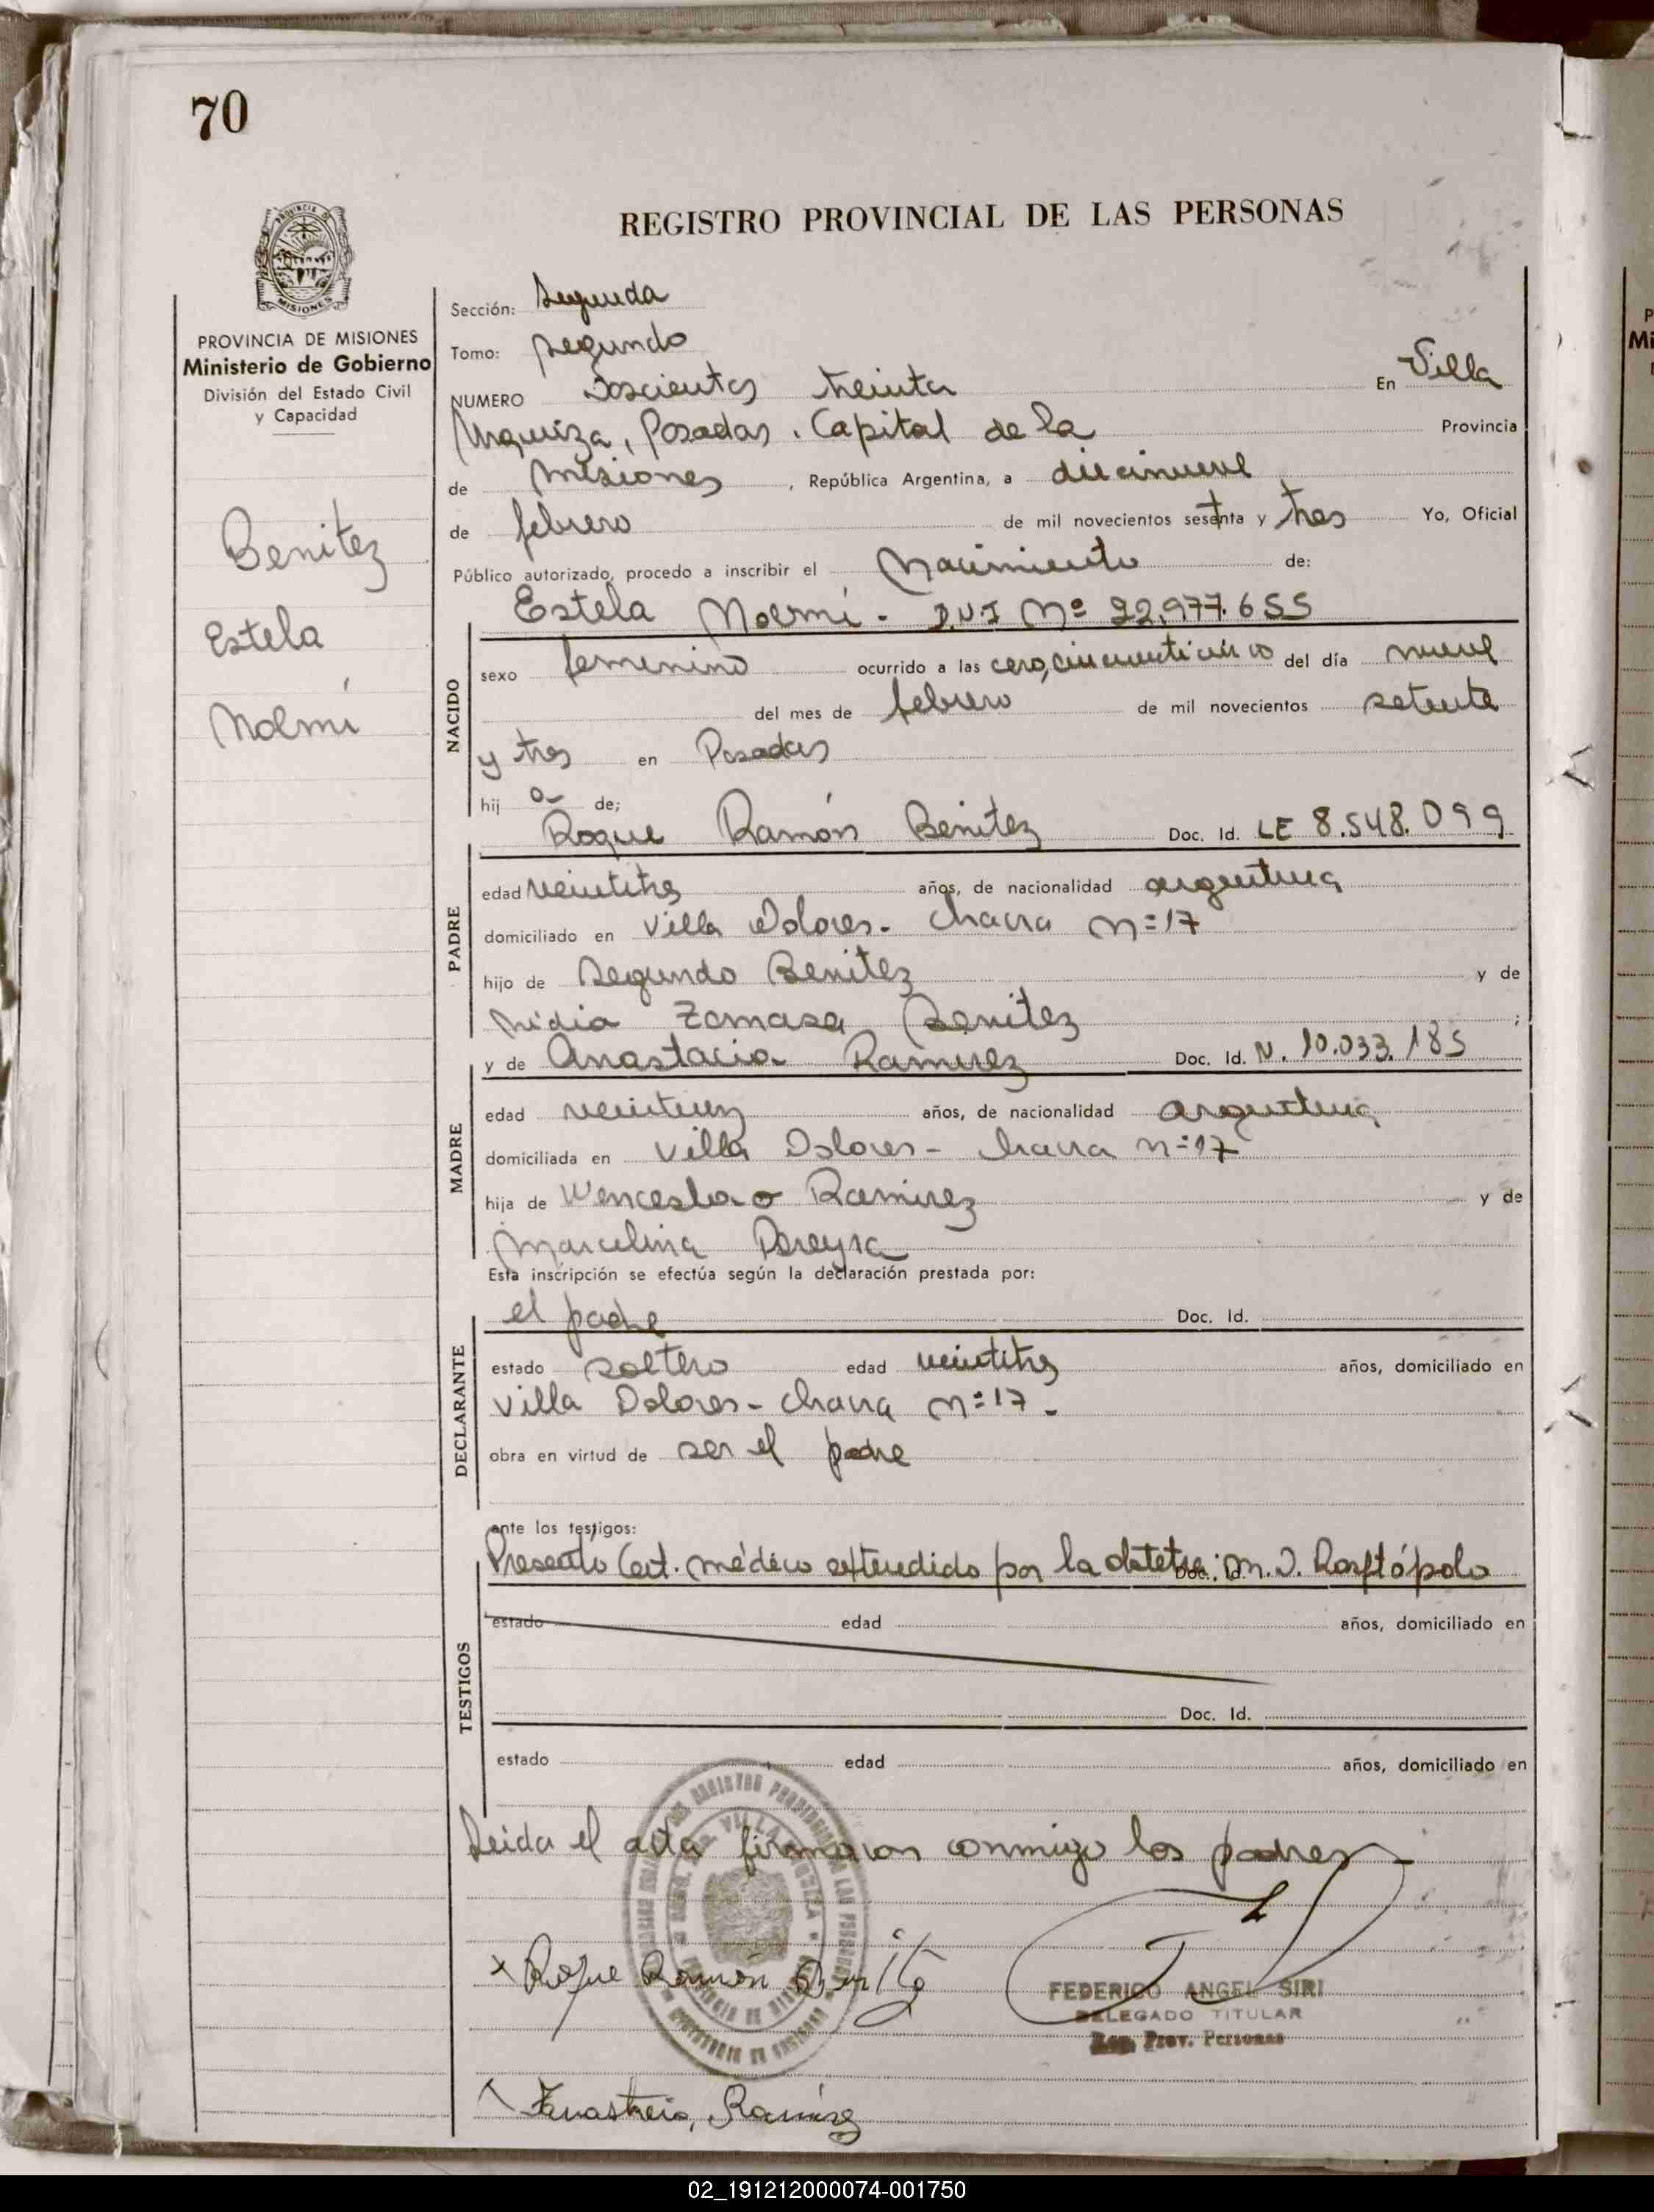 70
REGISTRO PROVINCIAL DE LAS PERSONAS
MISIONES
PROVINCIA DE MISIONES
Ministerio de Gobierno
División del Estado Civil
y Capacidad
Benitez
Estela
Noemí
Sección: Segunda
Tomo: segundo
NUMERO Doscientos treinta En Villa
Urquiza, Posadas, Capital de la Provincia
de Misiones, República Argentina, a diecinueve
de febrero de mil novecientos setenta y tres Yo, Oficial
Público autorizado, procedo a inscribir el Nacimiento de:
Estela Noemí - D.N.I Nº 22.977.655
NACIDO
sexo femenino ocurrido a las cero, cincuenticinco del día nueve
del mes de febrero de mil novecientos setenta
y tres en Posadas
hij a de;
Roque Ramón Benitez Doc. Id. LE 8.548.099
PADRE
edad veintitres años, de nacionalidad argentina
domiciliado en Villa Dolores - Chacra Nº 17
hijo de Segundo Benitez y de
Nidia Zomasa Benitez ;
y de Anastacia Ramirez Doc. Id. N. 10.033.185
MADRE
edad años, de nacionalidad argentina
domiciliada en Villa Dolores - Chacra Nº 17
hija de Wenceslao Ramirez y de
Marcelina Pereyra
Esta inscripción se efectúa según la declaración prestada por:
el padre Doc. Id.
DECLARANTE
estado soltero edad veintitres años, domiciliado en
Villa Dolores - Chacra Nº 17 -
obra en virtud de ser el padre
ante los testigos:
Presentó Cert. médico extendido por la Doc. Id. M. D.
TESTIGOS
estado edad años, domiciliado en
Doc. Id.
estado edad años, domiciliado en
Leida el acta firmaron conmigo los padres -
x Roque Ramón Benitez
FEDERICO ANGEL SIRI
DELEGADO TITULAR
Reg. Prov. Personas
Ramirez
02_191212000074-001750